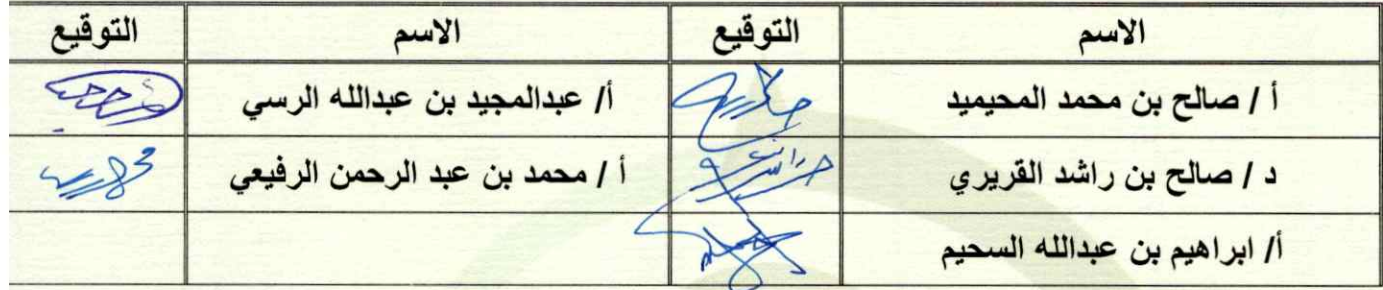 الاسم التوقيع الاسم التوقيع
أ / صالح بن محمد المحيميد أ/ عبدالمجيد بن عبدالله الرسي
د / صالح بن راشد القريري أ / محمد بن عبد الرحمن الرفيعي
أ/ ابراهيم بن عبدالله السحيم